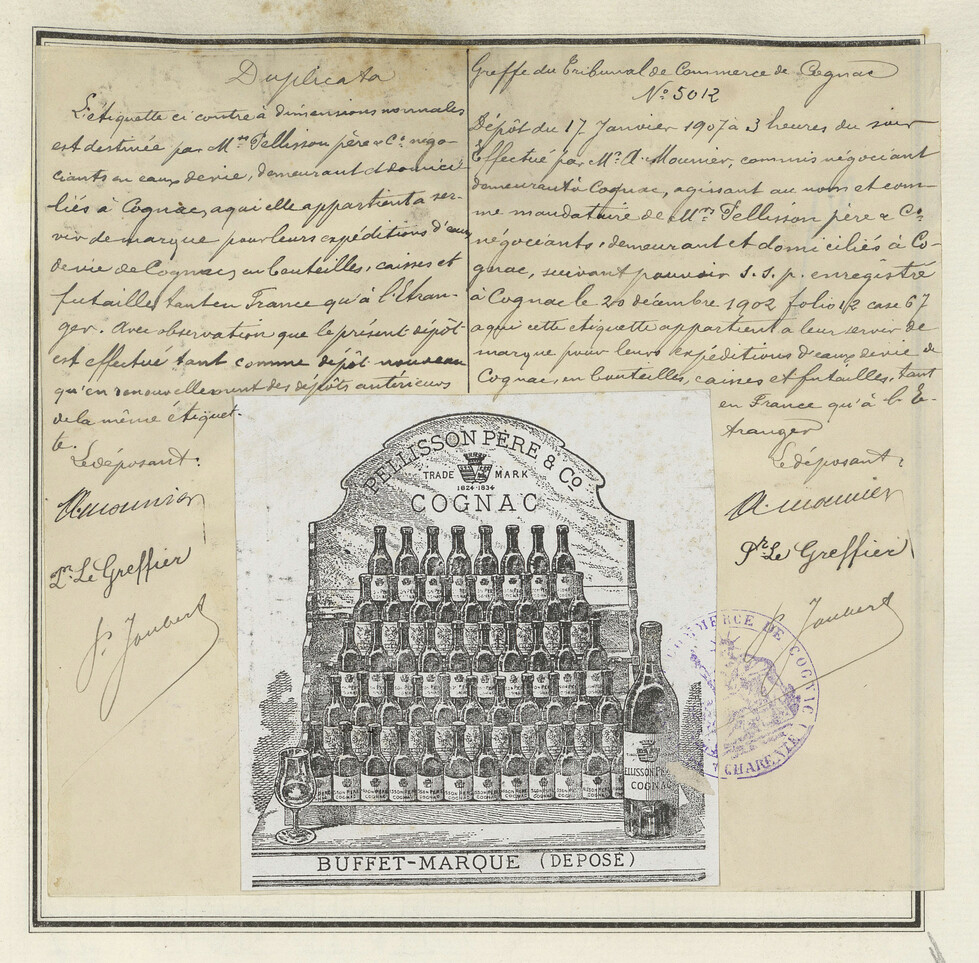 Duplicata
L'étiquette ci contre à dimensions normales
est destinée par Mrs Pellisson père & Co négo-
ciants en eaux de vie, demeurant et domici-
liés à Cognac, a qui elle appartient a ser-
vir de marque pour leurs expéditions d'eaux
de vie de Cognac, en bouteilles, caisses et
futaille, tant en France qu'à l'Etran-
ger. Avec observation que le présent dépôt
est effectué tant comme dépôt nouveau
qu'en renouvellement des dépôts antérieurs
de la même étiquet-
te.
Le déposant.
A. Mounier
Pr Le Greffier
Joubert
Greffe du Tribunal de Commerce de Cognac
No 5012
Dépôt du 17 Janvier 1907 à 3 heures du soir
Effectué par Mr A. Mounier, commis négociant
demeurant à Cognac, agissant au nom et com-
me mandataire de Mrs Pellisson père & Co
négociants, demeurant et domiciliés à Co-
gnac, suivant pouvoir s. s. p. enregistré
à Cognac le 20 décembre 1902 folio 12 case 67
a qui cette étiquette appartient à leur servir de
marque pour leurs expéditions d'eaux de vie de
Cognac, en bouteilles, caisses et futailles, tant
en France qu'à l'E-
tranger
Le déposant,
A. Mounier
Pr Le Greffier
Joubert
PELLISSON PÈRE & Co
TRADE MARK
1824-1834
COGNAC
ELLISSON PÈ
COGNAC
BUFFET-MARQUE (DEPOSÉ)
COMMERCE DE COGNAC
CHARENTE